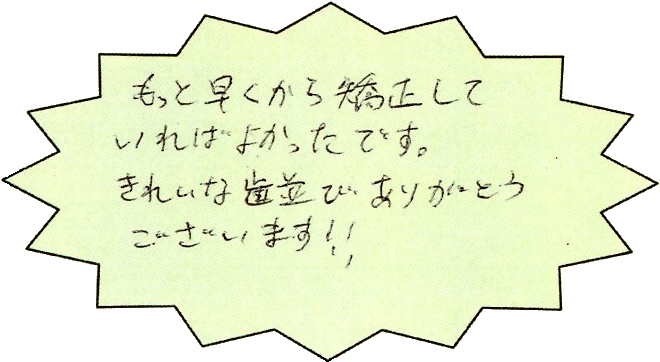 もっと早くから矯正して
いればよかったです。
きれいな歯並びありがとう
ございます!!